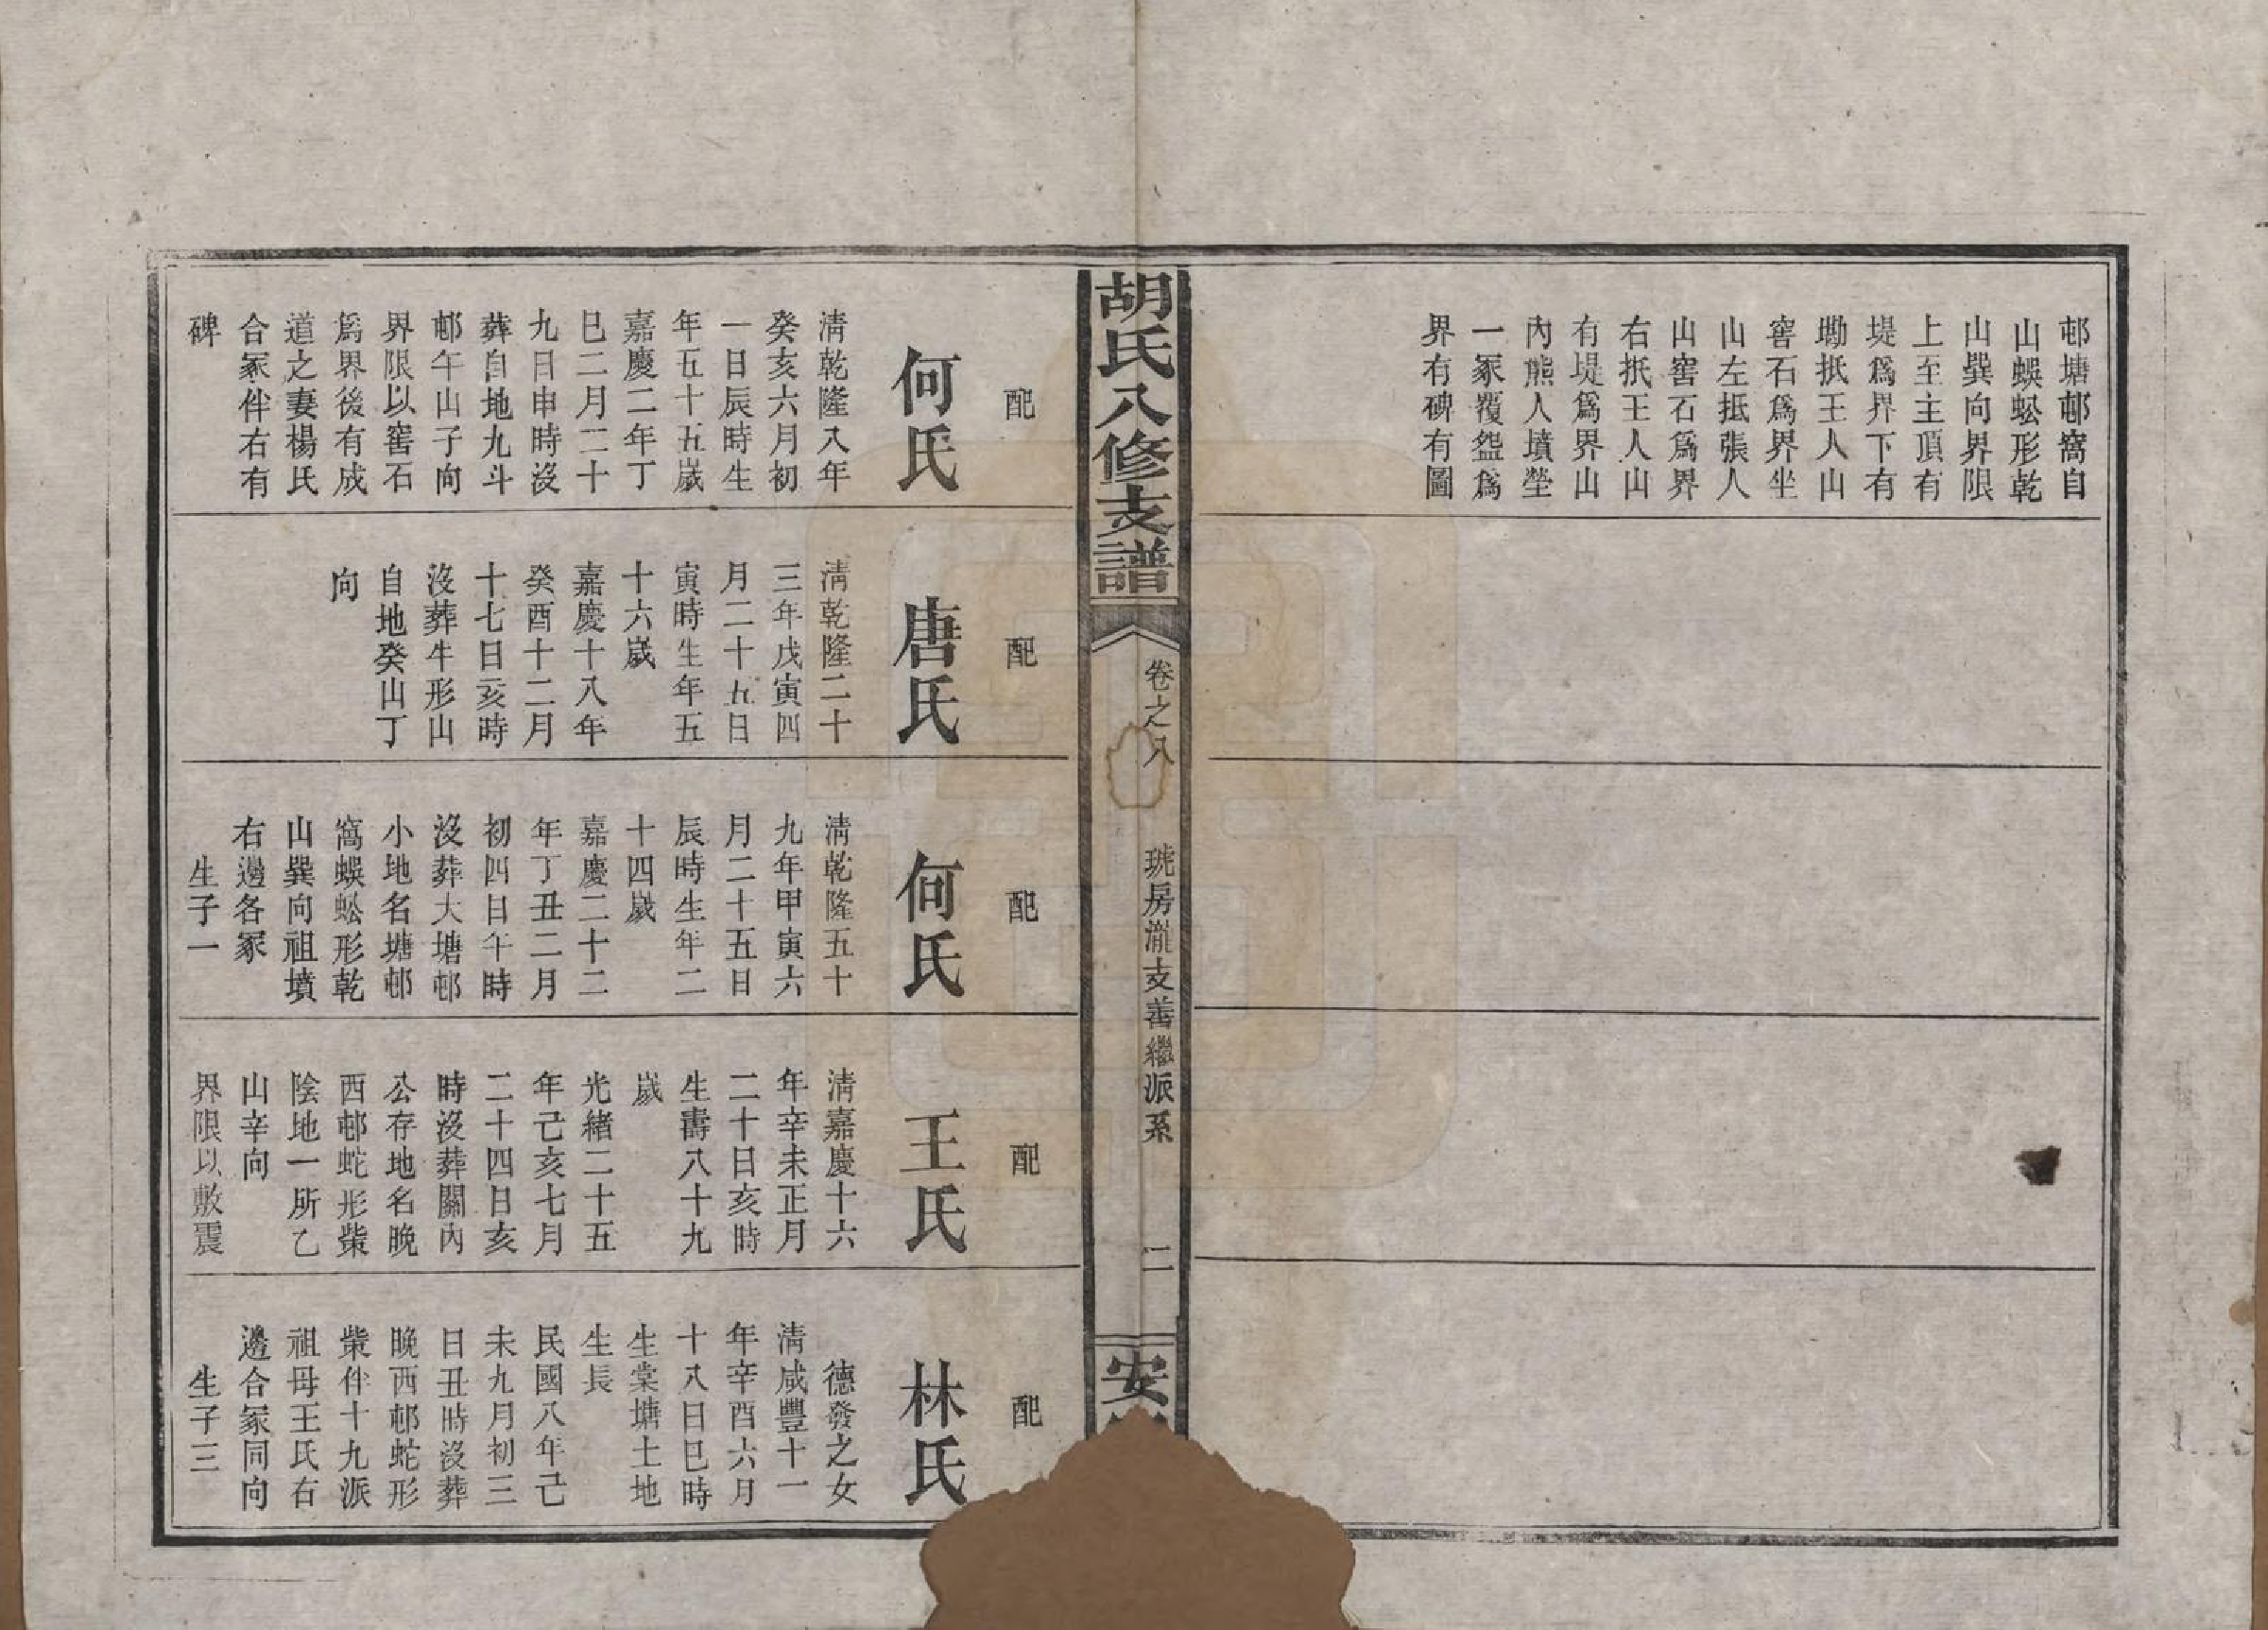 邨塘邨窩自
山蜈蚣形乾
山巽向界限
上至主頂有
堤爲界下有
墈抵王人山
窖石爲界坐
山左抵張人
山窖石爲界
右抵王人山
有堤爲界山
內熊人墳塋
一冢覆盌爲
界有碑有圖
胡氏八修支譜
卷之八
琥房瀧支善繼派系
二
安
配
何氏
淸乾隆八年
癸亥六月初
一日辰時生
年五十五歲
嘉慶二年丁
巳二月二十
九日申時沒
葬自地九斗
邨午山子向
界限以窖石
爲界後有成
道之妻楊氏
合冢伴右有
碑
配
唐氏
淸乾隆二十
三年戊寅四
月二十五日
寅時生年五
十六歲
嘉慶十八年
癸酉十二月
十七日亥時
沒葬牛形山
自地癸山丁
向
配
何氏
淸乾隆五十
九年甲寅六
月二十五日
辰時生年二
十四歲
嘉慶二十二
年丁丑二月
初四日午時
沒葬大塘邨
小地名塘邨
窩蜈蚣形乾
山巽向祖墳
右邊各冢
生子一
配
王氏
淸嘉慶十六
年辛未正月
二十日亥時
生壽八十九
歲
光緒二十五
年己亥七月
二十四日亥
時沒葬關內
公存地名晚
西邨蛇形柴
陰地一所乙
山辛向
界限以敷震
配
林氏
德發之女
淸咸豐十一
年辛酉六月
十八日巳時
生棠塘土地
生長
民國八年己
未九月初三
日丑時沒葬
晚西邨蛇形
柴伴十九派
祖母王氏右
邊合冢同向
生子三